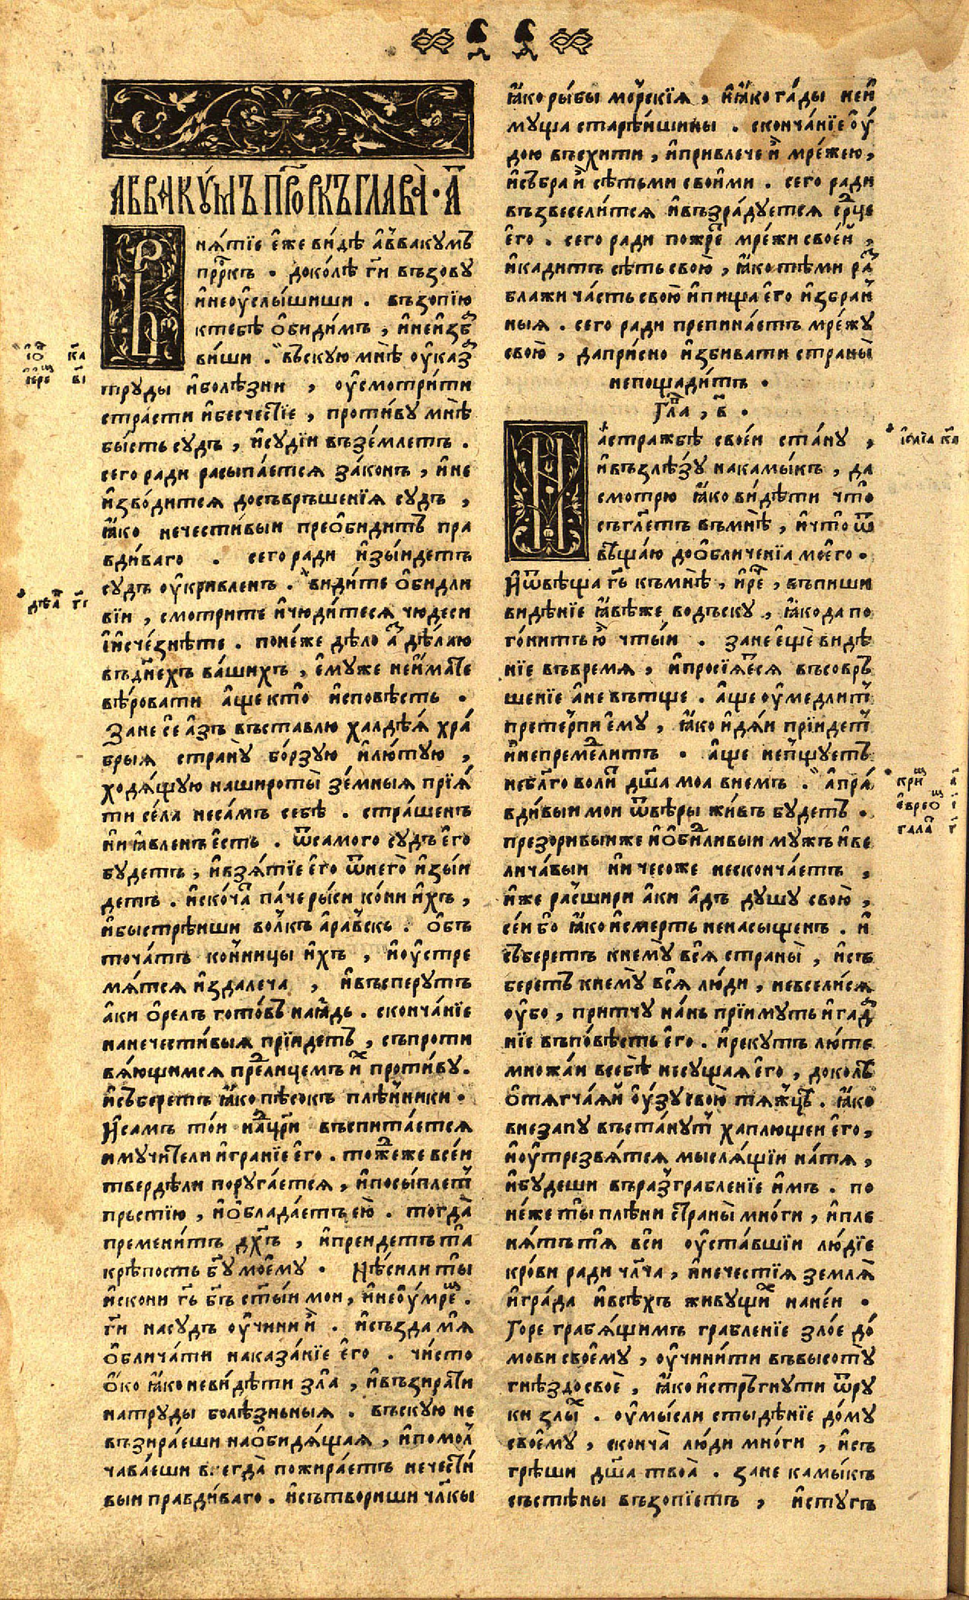 АВВАКꙋ́МЪ ПРⷪ҇РКЪ ГЛАВА̀ · А҃
Внѧтїе е́же ви́дѣ а҆ввакꙋмъ
прⷪ҇ркъ . доко́лѣ гдⷭ҇и въꙁовꙋ
и҆неоу҆слышиши . въꙁопїю
ктебѣ ѻ҆бидимъ , и҆неиꙁба
виши . въскꙋю мнѣ оу҆каꙁа
трꙋды и҆болѣꙁни , оу҆смотри́ти
страсти и҆бесчестїе , проти́вꙋ мнѣ
бы́сть сꙋдъ , и҆сꙋдїи въꙁе́млетъ .
сего ради раꙁсыпа́етсѧ ꙁако́нъ , и҆не
и҆ꙁво́дитсѧ досъвръше́нїѧ сꙋдъ ,
ꙗ҆ко нечестивыи преѻ҆бидитъ пра
вди́ваго . сего ради и҆ꙁы́идетъ
сꙋдъ оу҆кривленъ . ви́дите ѻ҆бидли
вїи , смотрите и҆чюди́тесѧ чюдеси
и҆исче́ꙁнѣте . поне́же дѣло а҆ꙁ дѣлаю
въднехъ ва́шихъ , е҆мꙋже неи҆мате
вѣ́ровати а҆ще кто̀ и҆сповѣсть .
Ꙁане се а҆ꙁъ въставлю халдѣѧ хра́
брыѧ странꙋ̀ бо́рꙁꙋю и҆лю́тꙋю ,
ходѧ́щꙋю нашироты̀ ꙁе́мныѧ прїѧ́
ти се́ла несамъ себѣ . стра́шенъ
и҆и҆ ꙗ҆вленъ е҆сть . ѿсамого сꙋдъ е҆го
бꙋдетъ , и҆вꙁѧтїе е҆го ѿнего̀ и҆ꙁы́и
детъ . и҆скоча́тъ па́че рыси ко́ни и҆хъ ,
и҆быстрѣиши волкъ а҆равьскъ . ѻ҆бъ
точатъ ко́нницы и҆хъ , и҆оу҆стре
мѧтсѧ и҆ꙁдалеча , и҆въсперꙋтъ
а҆ки ѻ҆релъ гото́въ наꙗ҆дь . сконча́нїе
нанечести́выѧ прїидетъ , съпроти
вѧющимсѧ предлицемъ и҆хъ проти́вꙋ .
и҆съберетъ ꙗ҆ко пѣсокъ плѣнники .
Исамъ то́и нацр҃и въспитаетсѧ
и҆мꙋчители и҆гранїе е҆го . тоже́же всеи
тверде́ли порꙋга́етсѧ , и҆посы́плетъ
пръстїю , и҆ѡ҆блада́етъ ею . тогда̀
премени́тъ дх҃ъ , и҆преидетъ та
крѣпость бг҃ꙋ мое́мꙋ . Не́си ли ты̀
и҆скони гдⷭ҇ь бг҃ъ ст҃ыи мои , и҆неоу҆мремъ .
гдⷭ҇и насꙋдъ оу҆чини и҆ . и҆съꙁда мѧ̀
ѻ҆блича́ти накаꙁа́нїе е҆го . чи́сто
ѻ҆ко ꙗ҆коневи́дѣти ꙁла̀ , и҆въꙁира́ти
натрꙋды болѣꙁньныѧ . въскꙋю не
въꙁира́еши наѻ҆бидѧ́щаѧ , и҆помол
чава́еши всегда̀ пожира́етъ нечести́
выи правди́ваго . и҆сътвориши чл҃кы
ꙗ҆ко ры́бы мо́рскїѧ , и҆ꙗ҆ко га́ды неи
мꙋща старѣишины . сконча́нїе оу҆́
дою въсхити , и҆привлече и҆ мре́жею ,
и҆събра и҆ сѣтьми свои́ми . сего ради
въꙁвесели́тсѧ и҆въꙁра́дꙋетсѧ ср҃це
е҆го . сего ради пожре мре́жи свое́й ,
и҆кади́тъ сѣть свою̀ , ꙗ҆ко тѣми раꙁ
блажи ча́сть свою̀ и҆пища е҆го и҆ꙁбран
ныѧ . сего ради препина́етъ мре́жꙋ
свою̀ , дапри́сно и҆ꙁбива́ти страны̀
непощади́тъ .
Гла , в҃ .
Настражбѣ свое́и ста́нꙋ ,
и҆въꙁлѣꙁꙋ накамыкъ , да
смотрю ꙗ҆ко ви́дѣти что̀
съгл҃етъ въмнѣ , и҆что ѿ
вѣща́ю доѻ҆бличе́нїа мое́го .
Иѿвѣща гдⷭ҇ь къмнѣ , и҆ре , въпиши
видѣ́нїе ꙗ҆вѣже водъскꙋ , ꙗ҆кода по
го́нитъ ю҆ чты́и . ꙁане еще видѣ́
нїе въвремѧ , и҆просїѧ́етсѧ въсовръ
ше́нїе а҆не вътще . а҆ще оу҆медлитъ
претерпи́ е҆мꙋ , ꙗ҆ко и҆дѧ́и прїидетъ
и҆непремедлитъ . а҆ще непщꙋетъ
небл҃го воли́ дш҃а моа внемъ . а҆пра́
вди́выи мои ѿвѣры жи́въ бꙋдетъ .
преꙁоривыиже и҆ѻ҆бидливыи мꙋжъ и҆ве
лича́выи ни че́соже нескончаетъ ,
и҆же расшири а҆ки а҆дъ дꙋшꙋ свою̀ ,
се́и бо ꙗ҆ко и҆смерть ненасы́щенъ . и҆
съберетъ кнемꙋ̀ всѧ̀ страны̀ , и҆съ
беретъ кнемꙋ̀ всѧ̀ лю́ди , невселисѧ
оу҆бо , притчꙋ на́нь прїимꙋтъ и҆гада
нїе въповѣсть е҆го . и҆рекꙋтъ лю́тѣ
множаи всебѣ несꙋщаѧ е҆го , доколѣ
ѻ҆тѧгча́ѧй оу҆́ꙁꙋ свою̀ тѧжцѣ . ꙗ҆ко
внеꙁапꙋ въста́нꙋтъ хаплющеи е҆го ,
и҆оу҆треꙁвѧтсѧ мыслѧ́щїи на́тѧ ,
и҆бꙋдеши въраꙁграбле́нїе и҆мъ . по
не́же ты̀ плѣни страны̀ мно́ги , и҆пле
нѧтъ тѧ̀ вси оу҆ста́вшїи лю́дїе
кро́ви ради чл҃ча , и҆нече́стїѧ ꙁемлѧ̀
и҆гра́да и҆всѣ́хъ живꙋщихъ нане́и .
Горе грабѧ́щимъ грабле́нїе ꙁло́е до́
мови своемꙋ , оу҆чини́ти въвысотꙋ
гнѣꙁдо своѐ , ꙗ҆ко и҆стръгнꙋти ѿрꙋ
ки ꙁлы́х . оу҆мы́сли стыдѣ́нїе до́мꙋ
своемꙋ , сконча̀ лю́ди мно́ги , и҆съ
грѣши дш҃а твоа̀ . ꙁане камыкъ
състѣны въꙁопїетъ , и҆стꙋгъ
дѣѧ҃ гі
і҆саїа ка
евреѡⷨ і҃
гала г҃